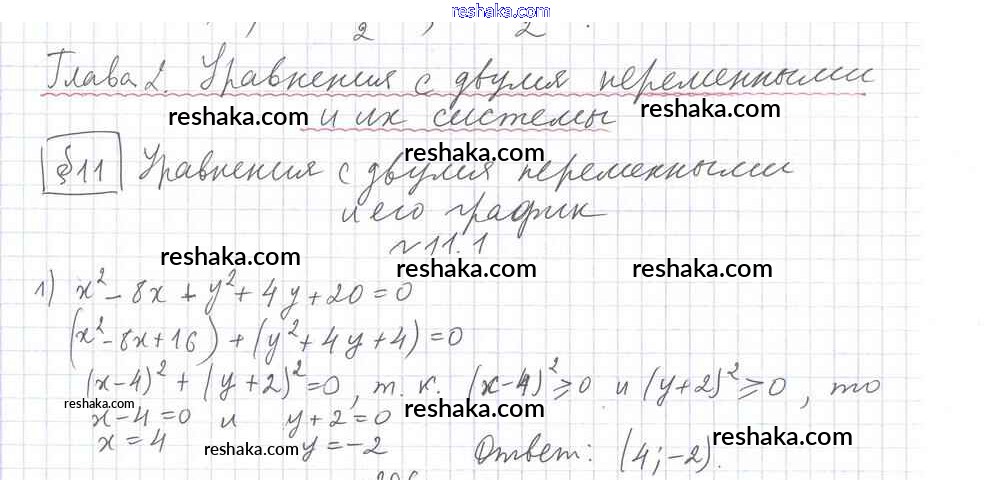 reshaka.com
Глава 2. Уравнения с двумя переменными
reshaka.com и их системы reshaka.com
reshaka.com
§11 Уравнения с двумя переменными
и его график
№11.1
reshaka.com reshaka.com reshaka.com
1) x² - 8x + y² + 4y + 20 = 0
(x² - 8x + 16) + (y² + 4y + 4) = 0
(x-4)² + (y+2)² = 0, т.к. (x-4)² ≥ 0 и (y+2)² ≥ 0, то
reshaka.com reshaka.com reshaka.com
x-4=0 и y+2=0
x=4 y=-2 Ответ: (4;-2).
reshaka.com reshaka.com